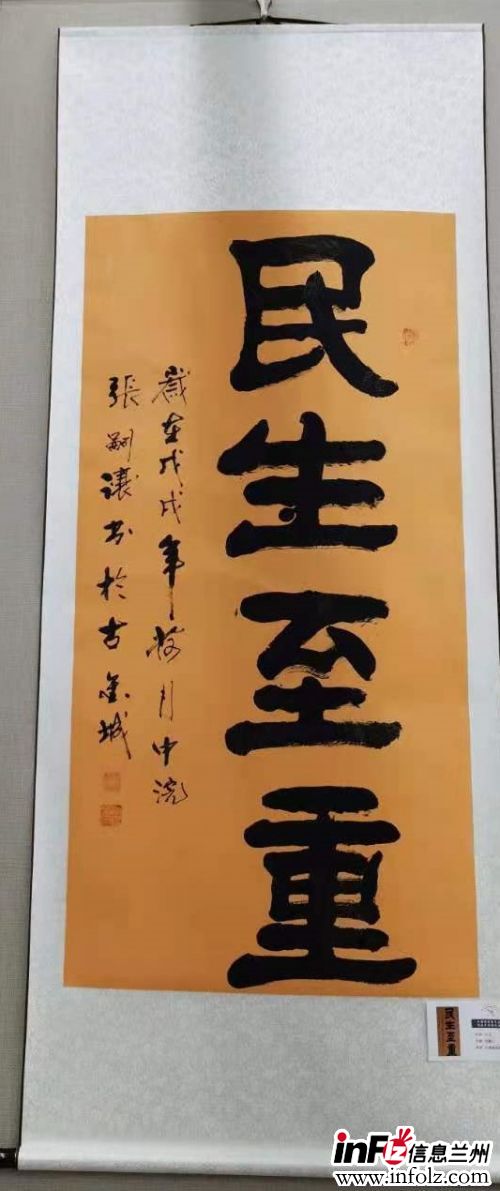 民生至重
歲在戊戌年梅月中浣
張嗣讓书於古金城
民生至重
inFLZ信息兰州
www.infolz.com